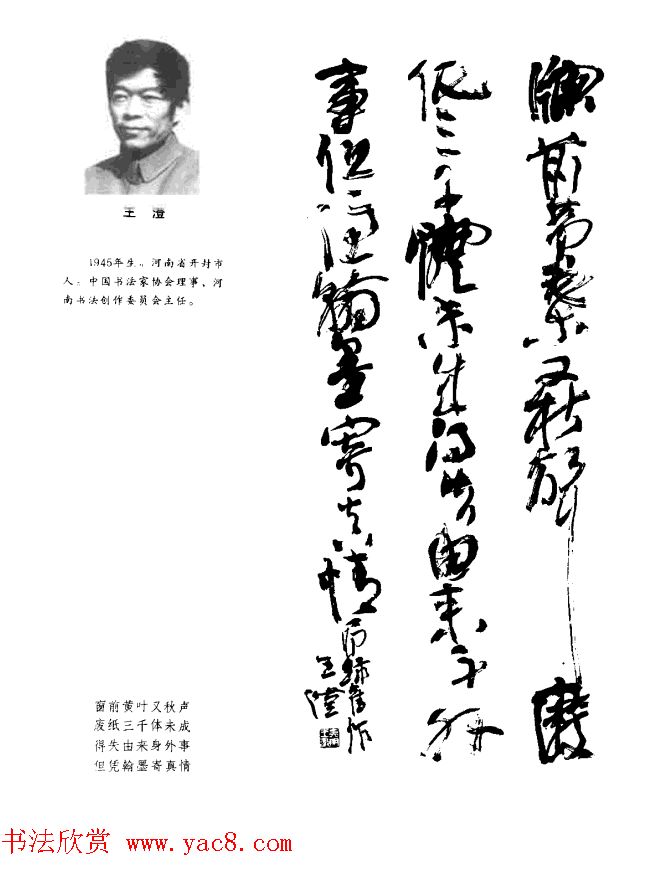 王 澄
1945年生。河南省开封市
人。中国书法家协会理事、河
南书法创作委员会主任。
窗前黄叶又秋声 废
纸三千体未成得失由来身外
事但凭翰墨寄真情
旧稿旧作
王澄
窗前黄叶又秋声
废纸三千体未成
得失由来身外事
但凭翰墨寄真情
书法欣赏 www.yac8.com